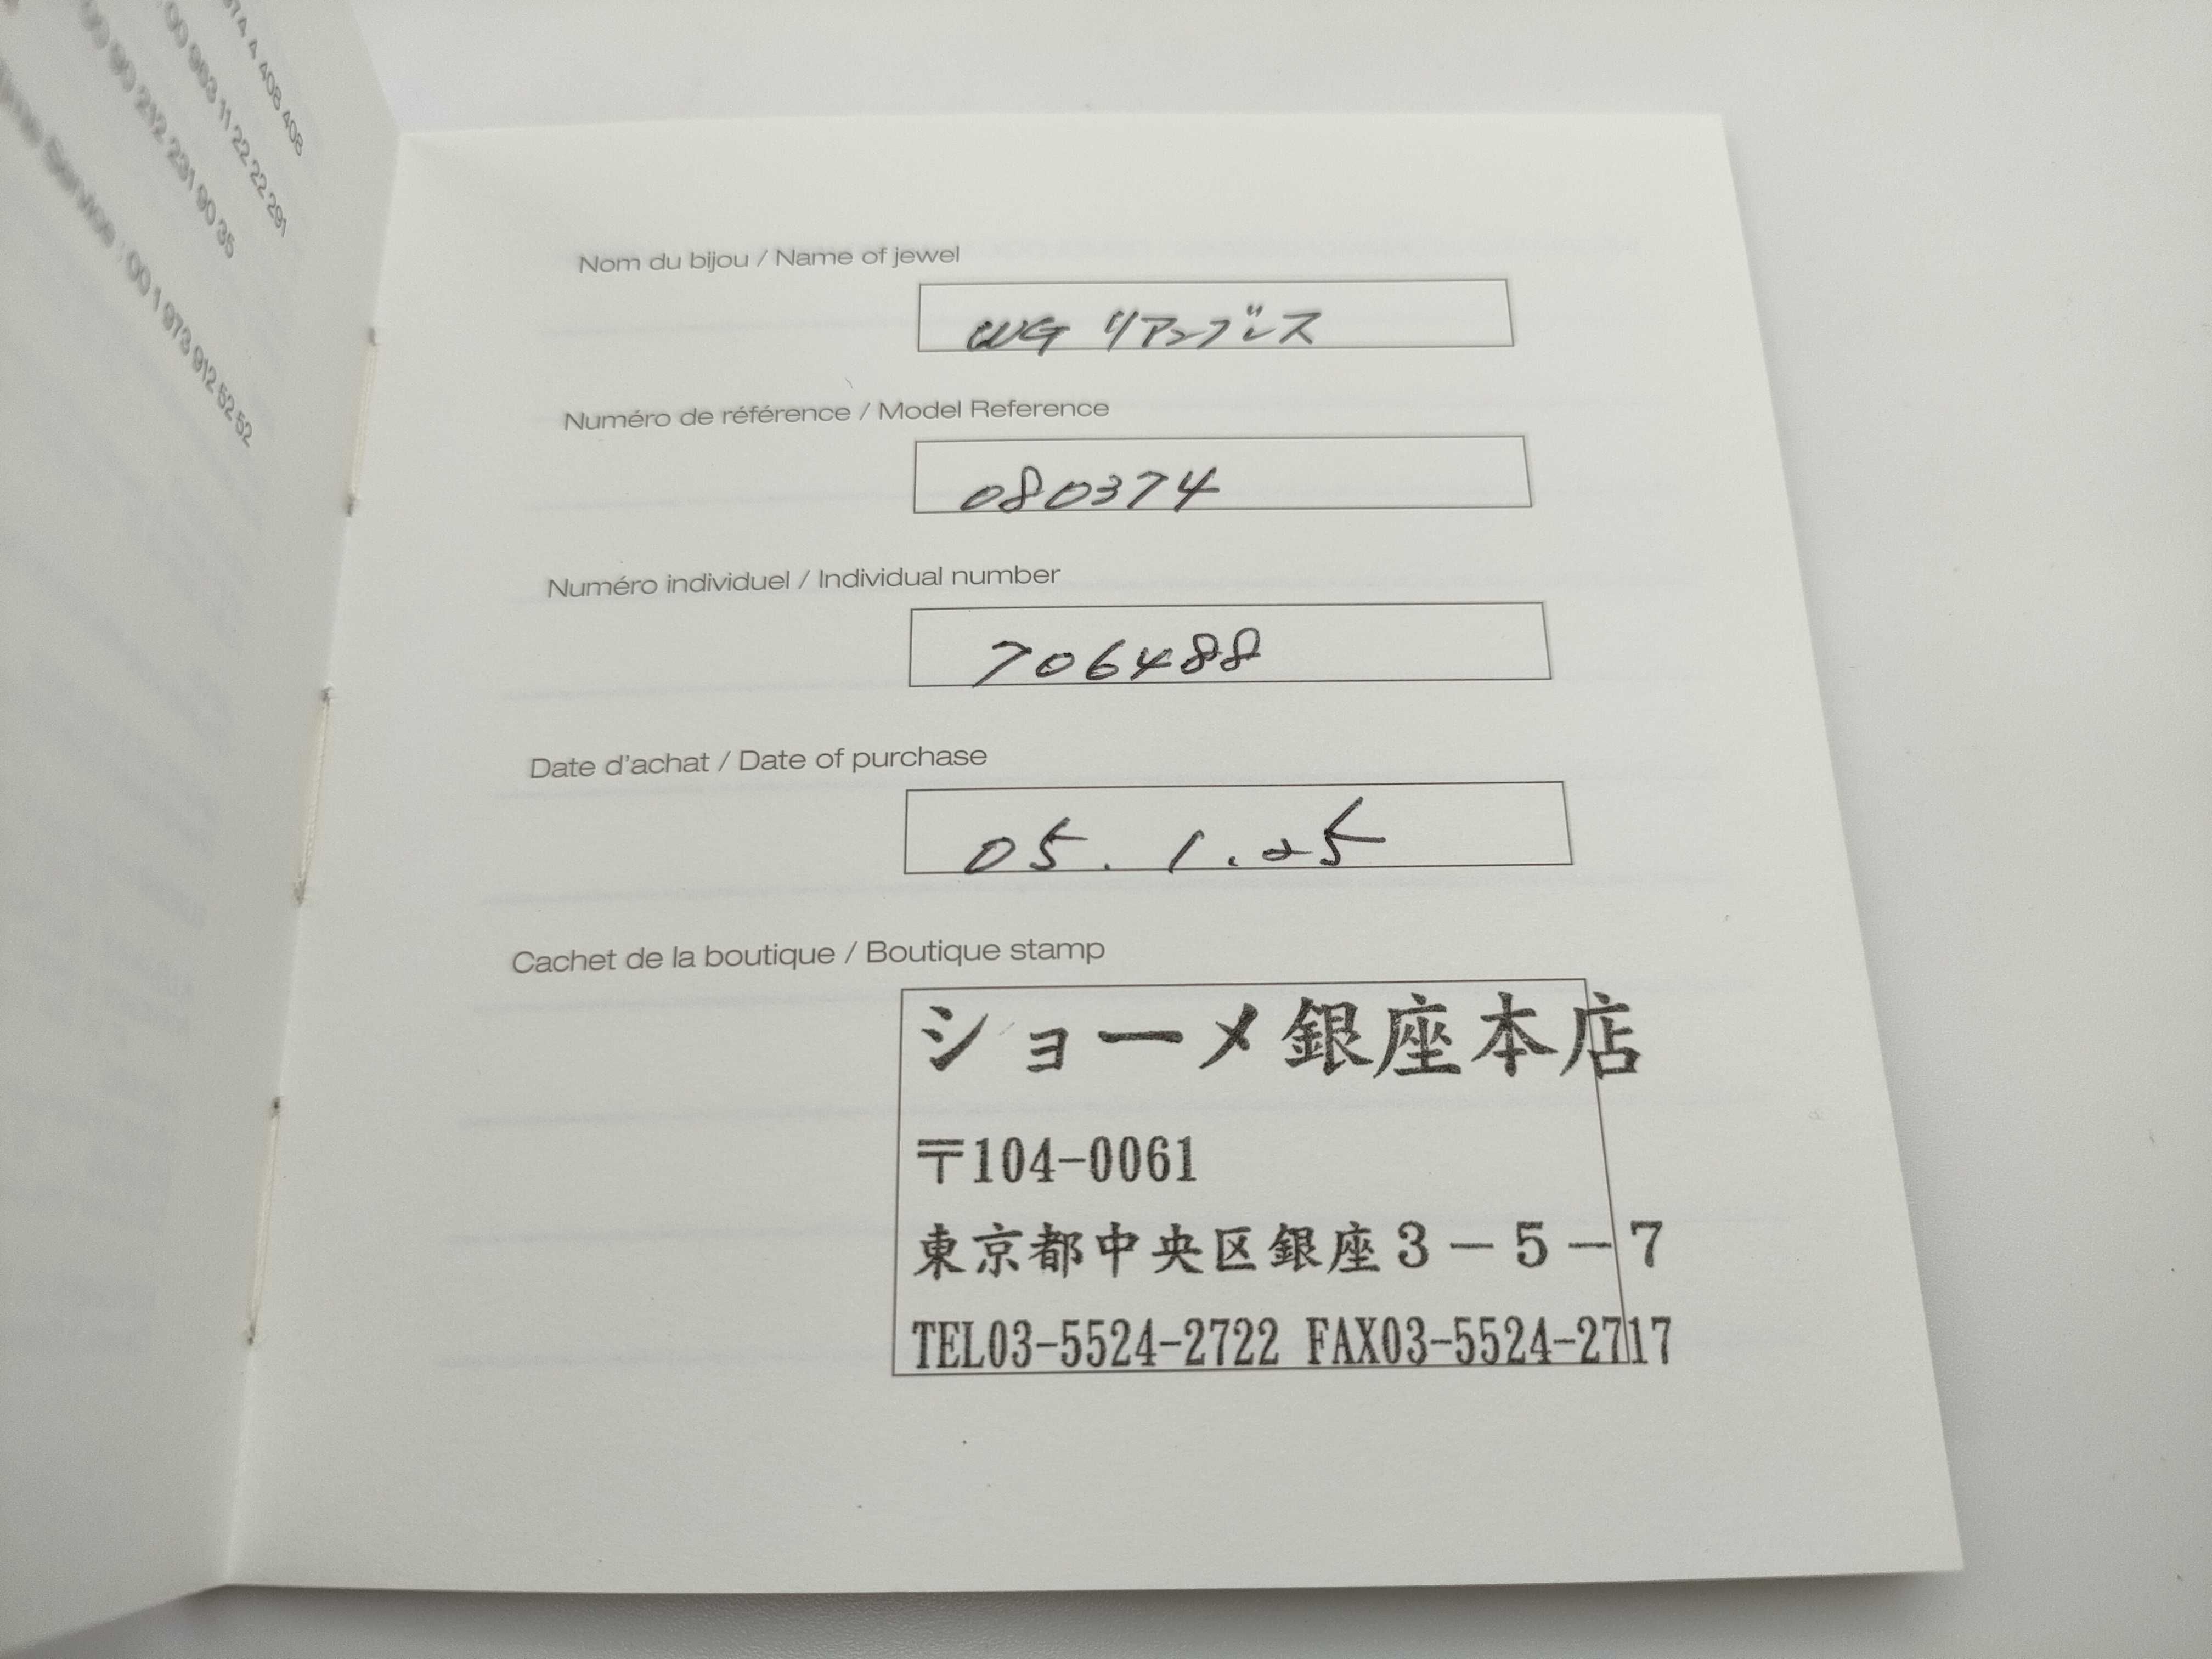 974 4 408 408
00 963 11 22 22 291
00 90 212 231 90 35
Service : 00 1 973 912 52 52
Nom du bijou / Name of jewel
WG リアンブレス
Numéro de référence / Model Reference
080374
Numéro individuel / Individual number
706488
Date d'achat / Date of purchase
05.1.25
Cachet de la boutique / Boutique stamp
ショーメ銀座本店
〒104-0061
東京都中央区銀座3-5-7
TEL03-5524-2722 FAX03-5524-2717